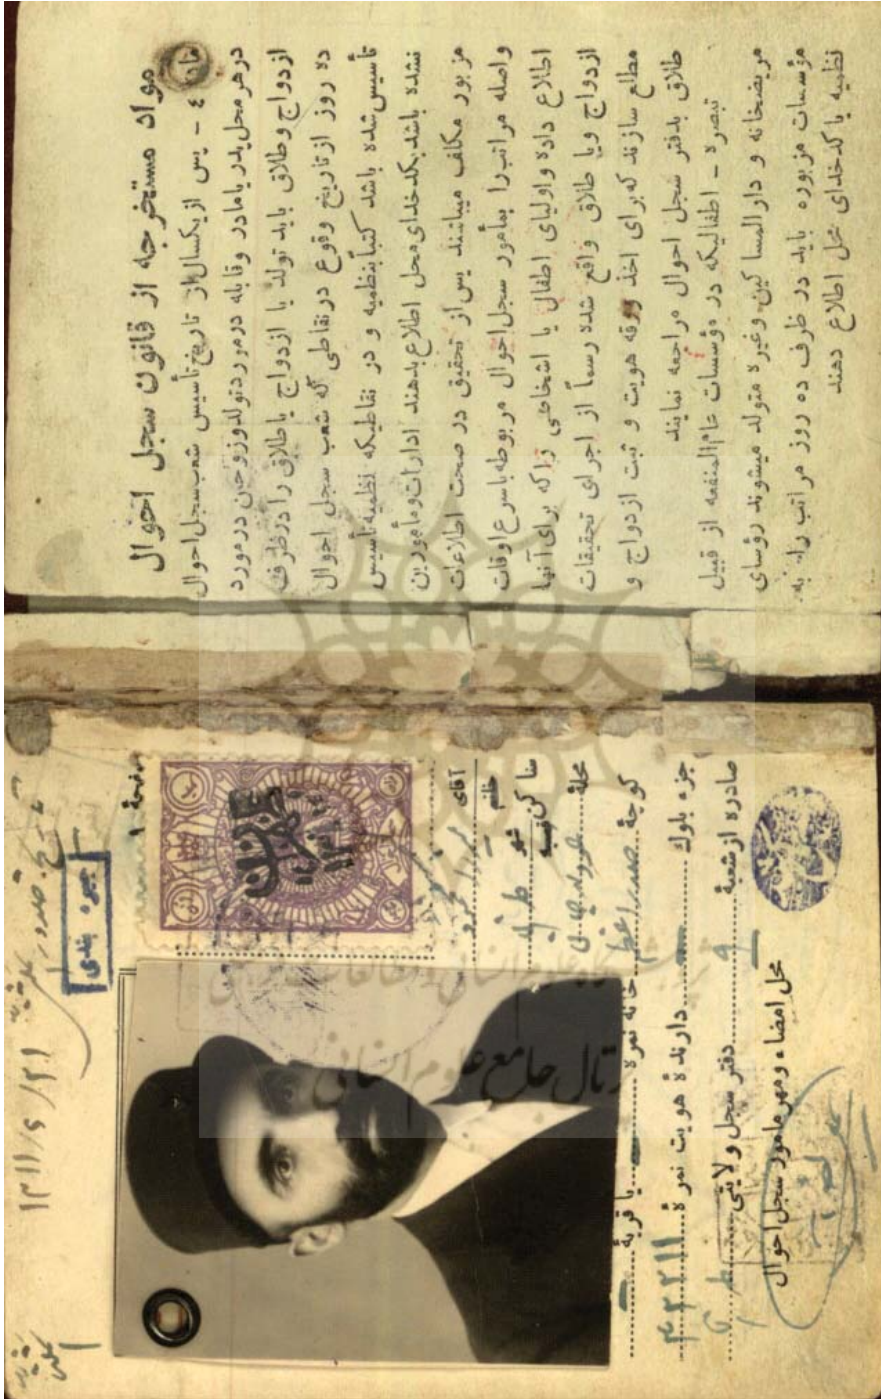 مواد مستخرجه از قانون سجل احوال
ماده ٤ - پس از یکسال از تاریخ تأسیس شعب سجل احوال
در هر محل پدر یا مادر و قابله در مورد تولد و زوجین در مورد
ازدواج و طلاق باید تولد یا ازدواج یا طلاق را در ظرف
ده روز از تاریخ وقوع در نقاطی که شعب سجل احوال
تأسیس شده باشد کتباً بنظمیه و در نقاطیکه نظمیه تأسیس
نشده باشد بکدخدای محل اطلاع بدهند ادارات و مأمورین
مزبور مکلف میباشند پس از تحقیق در صحت اطلاعات
واصله مراتب را بمأمور سجل احوال مربوطه باسرع اوقات
اطلاع داده و اولیای اطفال یا اشخاصی را که برای آنها
ازدواج و یا طلاق واقع شده رسماً از اجرای تحقیقات
مطلع سازند که برای اخذ ورقه هویت و ثبت ازدواج و
طلاق بدفتر سجل احوال مراجعه نمایند
تبصره - اطفالیکه در مؤسسات عام‌المنفعه از قبیل
مریضخانه و دارالمساکین وغیره متولد میشوند رؤسای
مؤسسات مزبوره باید در ظرف ده روز مراتب را به
نظمیه یا کدخدای محل اطلاع دهند
١٣١١/٦/٢١
جیره بندی
صفحهٔ ١
آقای
خانم
ساکن شهر طهران
محلهٔ
کوچهٔ صدراعظم خانه نمرهٔ یا قریهٔ
جزء بلوک دارندهٔ هویت نمرهٔ ٤٢٢١١
صادره از شعبهٔ ٩ دفتر سجل ولایتی
محل امضاء و مهر مأمور سجل احوال
پژوهشگاه علوم انسانی و مطالعات فرهنگی
پرتال جامع علوم انسانی